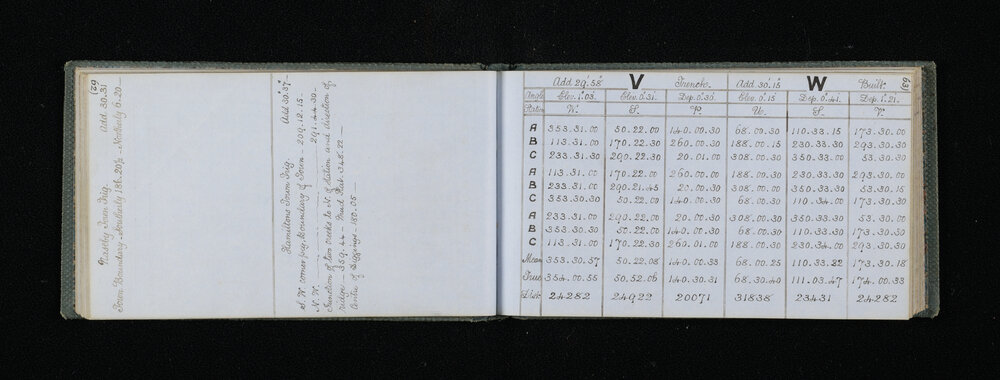 (62)
Town Trig. Add 30.31
Town Boundary Northerly 186.20½ - Northerly 6.20
Hamiltons Town Trig. Add 30.37
S.W. corner peg, boundary of Town - 209.12.15 -
N.W. 291.44.30 -
Junction of two creeks to N. of station and direction of
ridge - 359.44 - Mud Hut - 348.22 -
Centre of Diggings - 180.05 -
(63)
Add 29°.58' V Trench. Add 30°.15' W Built.
Angle Elev. 1°.03. Elev. 0°.31. Dep. 0°.30. Elev. 0°.15 Dep. 0°.41. Dep. 1°.21.
Station W. S. U. S. V.
A 353.31.00 50.22.00 140.00.30 68.00.30 110.33.15 173.30.00
B 113.31.00 170.22.30 260.00.30 188.00.15 230.33.30 293.30.30
C 233.31.30 290.22.30 20.01.00 308.00.30 350.33.00 53.30.30
A 113.31.00 170.22.00 260.00.00 188.00.30 230.33.30 293.30.00
B 233.31.00 290.21.45 20.00.30 308.00.00 350.33.30 53.30.15
C 353.30.30 50.22.00 140.00.30 68.00.30 110.34.00 173.30.30
A 233.31.00 290.22.00 20.00.30 308.00.30 350.33.30 53.30.00
B 353.30.30 50.22.00 140.00.30 68.00.30 110.33.30 173.30.30
C 113.31.00 170.22.30 260.01.00 188.00.30 230.34.00 293.30.30
Mean 353.30.57 50.22.08 140.00.33 68.00.25 110.33.32 173.30.18
True 354.00.55 50.52.06 140.30.31 68.30.40 111.03.47 174.00.33
Dist. 24282 24922 20071 31838 23431 24282